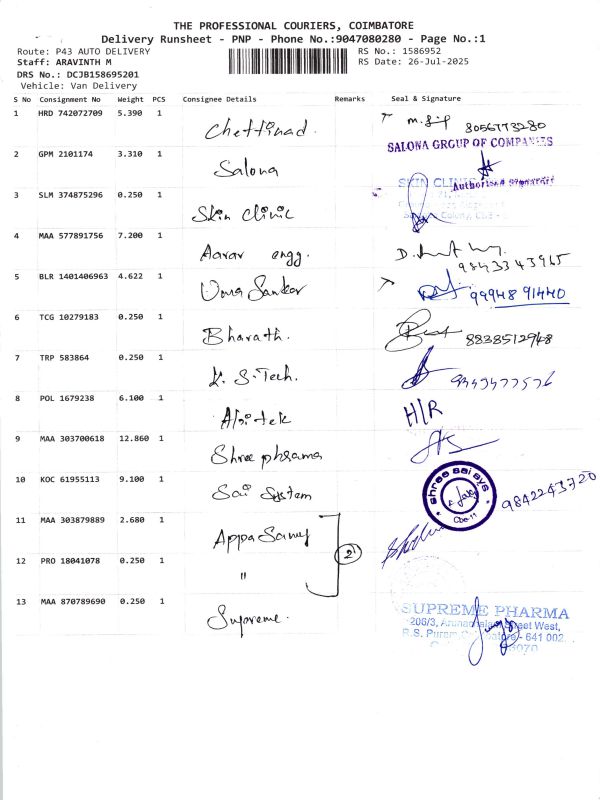 THE PROFESSIONAL COURIERS, COIMBATORE
Delivery Runsheet - PNP - Phone No.:9047080280 - Page No.:1
Route: P43 AUTO DELIVERY RS No.: 1586952
Staff: ARAVINTH M RS Date: 26-Jul-2025
DRS No.: DCJB158695201
Vehicle: Van Delivery
S No Consignment No Weight PCS Consignee Details Remarks Seal & Signature
1 HRD 742072709 5.390 1 Chettinad. 8056773280
SALONA GROUP OF COMPANIES
2 GPM 2101174 3.310 1 Salona
Authorised Signatory
SKIN CLINIC
3 SLM 374875296 0.250 1 Skin Clinic
4 MAA 577891756 7.200 1 Aarav engg.
9843343965
5 BLR 1401406963 4.622 1 Uma Sankar 9994891440
6 TCG 10279183 0.250 1 Bharath. 8838512948
7 TRP 583864 0.250 1 K.S.Tech.
8 POL 1679238 6.100 1 H/R
9 MAA 303700618 12.860 1 Shree pharma
10 KOC 61955113 9.100 1 Sai System
shree sai sys
Cbe-11
9842243720
11 MAA 303879889 2.680 1 Appa Samy
2
12 PRO 18041078 0.250 1 "
13 MAA 870789690 0.250 1 Supreme.
SUPREME PHARMA
206/3, Street West,
R.S. Puram - 641 002.